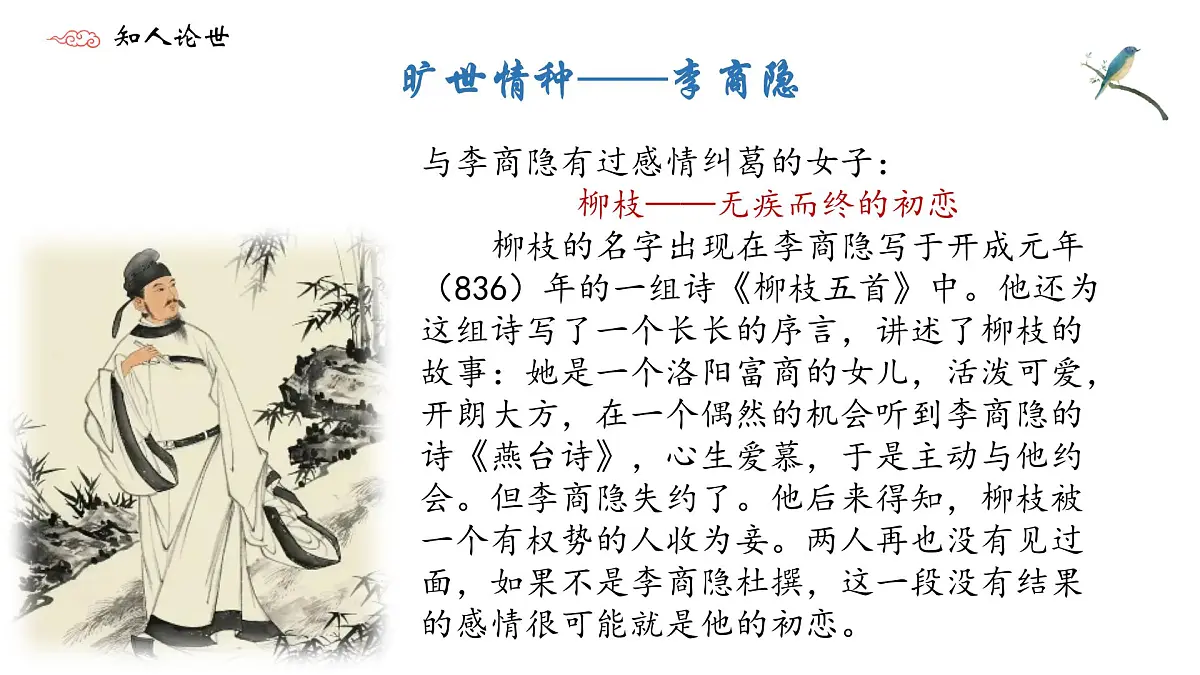 知人论世
旷世情种——李商隐
与李商隐有过感情纠葛的女子：
柳枝——无疾而终的初恋
柳枝的名字出现在李商隐写于开成元年
（836）年的一组诗《柳枝五首》中。他还为
这组诗写了一个长长的序言，讲述了柳枝的
故事：她是一个洛阳富商的女儿，活泼可爱，
开朗大方，在一个偶然的机会听到李商隐的
诗《燕台诗》，心生爱慕，于是主动与他约
会。但李商隐失约了。他后来得知，柳枝被
一个有权势的人收为妾。两人再也没有见过
面，如果不是李商隐杜撰，这一段没有结果
的感情很可能就是他的初恋。